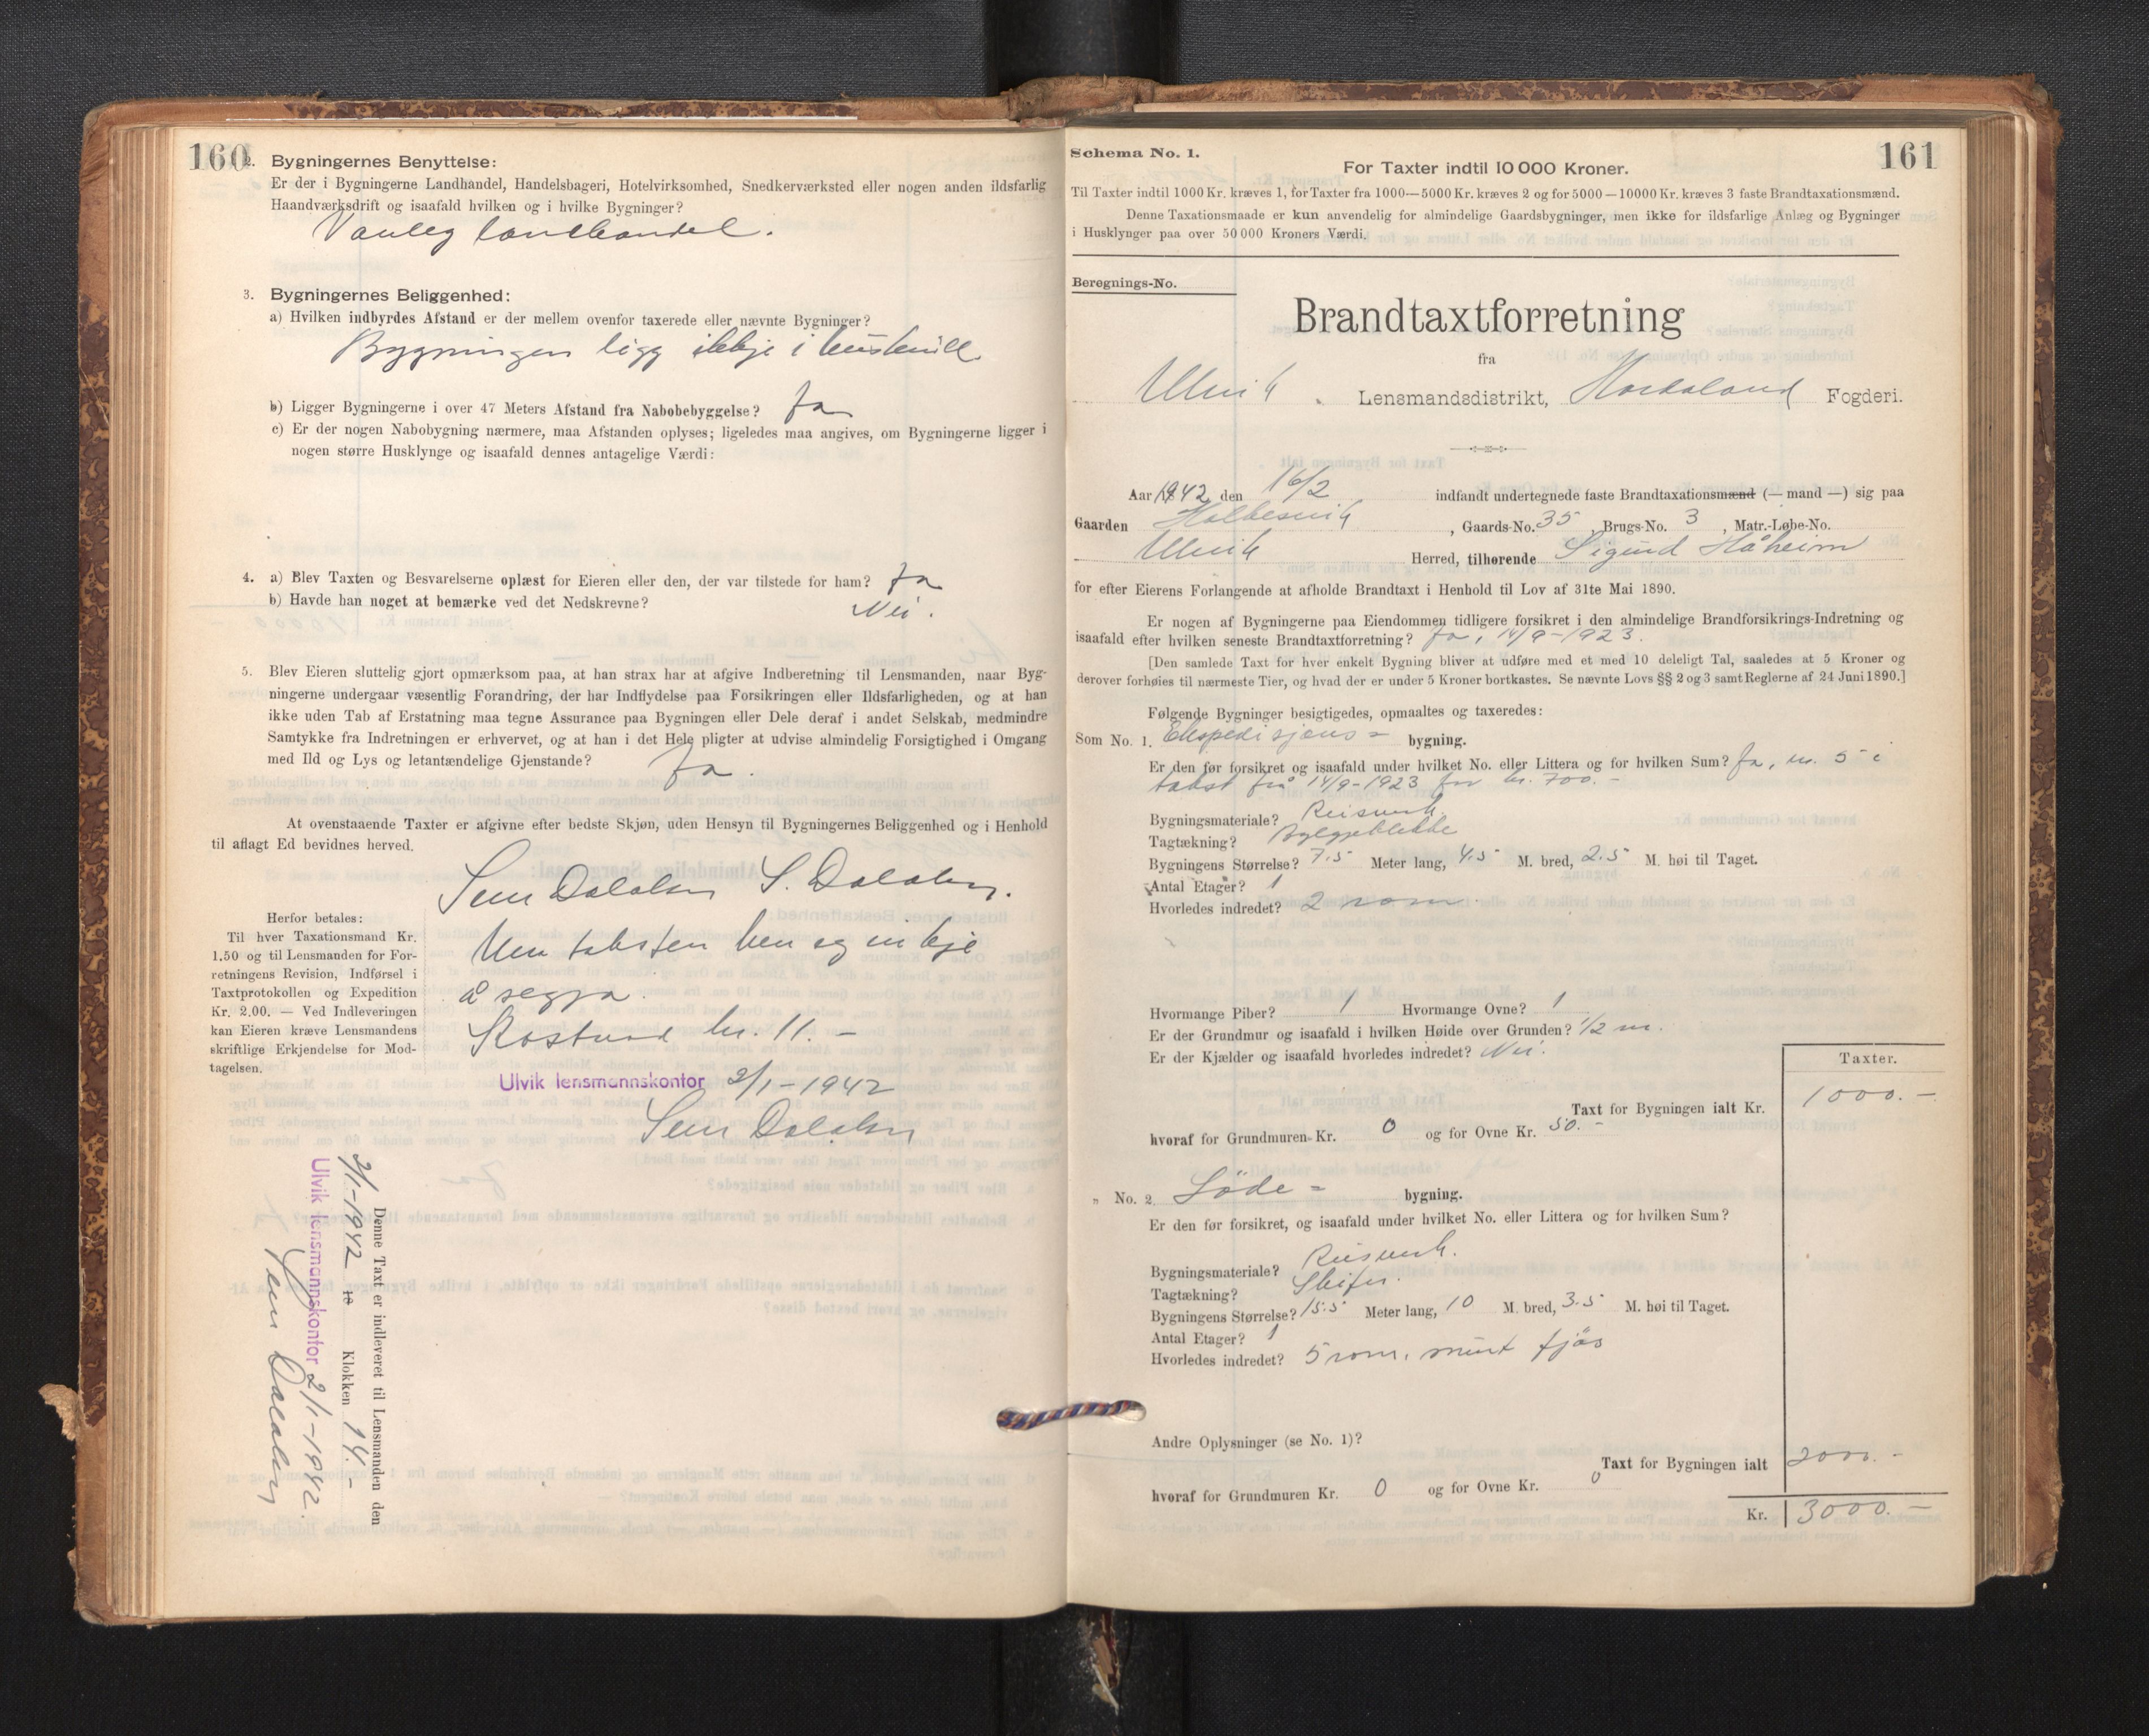 160
2. Bygningernes Benyttelse:
Er der i Bygningerne Landhandel, Handelsbageri, Hotelvirksomhed, Snedkerværksted eller nogen anden ildsfarlig
Haandværksdrift og isaafald hvilken og i hvilke Bygninger?
Vanleg landhandel.
3. Bygningernes Beliggenhed:
a) Hvilken indbyrdes Afstand er der mellem ovenfor taxerede eller nævnte Bygninger?
Bygningen ligg ikkje i huskull.
b) Ligger Bygningerne i over 47 Meters Afstand fra Nabobebyggelse? Ja
c) Er der nogen Nabobygning nærmere, maa Afstanden oplyses; ligeledes maa angives, om Bygningerne ligger i
nogen større Husklynge og isaafald dennes antagelige Værdi:
4. a) Blev Taxten og Besvarelserne oplæst for Eieren eller den, der var tilstede for ham? Ja
b) Havde han noget at bemærke ved det Nedskrevne? Nei.
5. Blev Eieren sluttelig gjort opmærksom paa, at han strax har at afgive Indberetning til Lensmanden, naar Byg-
ningerne undergaar væsentlig Forandring, der har Indflydelse paa Forsikringen eller Ildsfarligheden, og at han
ikke uden Tab af Erstatning maa tegne Assurance paa Bygningen eller Dele deraf i andet Selskab, medmindre
Samtykke fra Indretningen er erhvervet, og at han i det Hele pligter at udvise almindelig Forsigtighed i Omgang
med Ild og Lys og letantændelige Gjenstande? Ja.
At ovenstaaende Taxter er afgivne efter bedste Skjøn, uden Hensyn til Bygningernes Beliggenhed og i Henhold
til aflagt Ed bevidnes herved.
Dalaker S. Dalaker.
Herfor betales:
Til hver Taxationsmand Kr.
1.50 og til Lensmanden for For-
retningens Revision, Indførsel i
Taxtprotokollen og Expedition
Kr. 2.00. — Ved Indleveringen
kan Eieren kræve Lensmandens
skriftlige Erkjendelse for Mod-
tagelsen.
Um taksten hev eg inkje
å segja.
Kostnad kr. 11.-
Ulvik lensmannskontor 2/1-1942
Dalaker
Denne Taxt er indleveret til Lensmanden den
2/1-1942 18 Klokken 14.-
Ulvik lensmannskontor 2/1-1942.
Dalaker
161
Schema No. 1.
For Taxter indtil 10 000 Kroner.
Til Taxter indtil 1000 Kr. kræves 1, for Taxter fra 1000—5000 Kr. kræves 2 og for 5000—10000 Kr. kræves 3 faste Brandtaxationsmænd.
Denne Taxationsmaade er kun anvendelig for almindelige Gaardsbygninger, men ikke for ildsfarlige Anlæg og Bygninger
i Husklynger paa over 50 000 Kroners Værdi.
Beregnings-No.
Brandtaxtforretning
fra
Ulvik Lensmandsdistrikt, Hordaland Fogderi.
Aar 1942 den 16/2 indfandt undertegnede faste Brandtaxationsmænd (— mand —) sig paa
Gaarden Holkesvik, Gaards-No. 35, Brugs-No. 3, Matr.-Løbe-No.
Ulvik Herred, tilhørende Sigurd Håheim
for efter Eierens Forlangende at afholde Brandtaxt i Henhold til Lov af 31te Mai 1890.
Er nogen af Bygningerne paa Eiendommen tidligere forsikret i den almindelige Brandforsikrings-Indretning og
isaafald efter hvilken seneste Brandtaxtforretning? Ja, 14/9-1923.
[Den samlede Taxt for hver enkelt Bygning bliver at udføre med et med 10 deleligt Tal, saaledes at 5 Kroner og
derover forhøies til nærmeste Tier, og hvad der er under 5 Kroner bortkastes. Se nævnte Lovs §§ 2 og 3 samt Reglerne af 24 Juni 1890.]
Følgende Bygninger besigtigedes, opmaaltes og taxeredes:
Som No. 1. Ekspedisjons= bygning.
Er den før forsikret og isaafald under hvilket No. eller Littera og for hvilken Sum? Ja, nr. 5 i
takst frå 14/9-1923 for kr. 700.-
Bygningsmateriale? Reisverk.
Tagtækning? Bylgjeblekke
Bygningens Størrelse? 7.5 Meter lang, 4.5 M. bred, 2.5 M. høi til Taget.
Antal Etager? 1
Hvorledes indredet? 2 rom.
Hvormange Piber? 1 Hvormange Ovne? 1
Er der Grundmur og isaafald i hvilken Høide over Grunden? 1/2 m.
Er der Kjælder og isaafald hvorledes indredet? Nei.
Taxter.
Taxt for Bygningen ialt Kr. 1000.-
hvoraf for Grundmuren Kr. 0 og for Ovne Kr. 50.-
„ No. 2. Löde= bygning.
Er den før forsikret, og isaafald under hvilket No. eller Littera og for hvilken Sum?
Bygningsmateriale? Reisverk.
Tagtækning? Skifer.
Bygningens Størrelse? 15.5 Meter lang, 10 M. bred, 3.5 M. høi til Taget.
Antal Etager? 1
Hvorledes indredet? 5 rom, fjös
Andre Oplysninger (se No. 1)?
Taxt for Bygningen ialt 2000.-
hvoraf for Grundmuren Kr. 0 og for Ovne Kr. 0
Kr. 3000.-